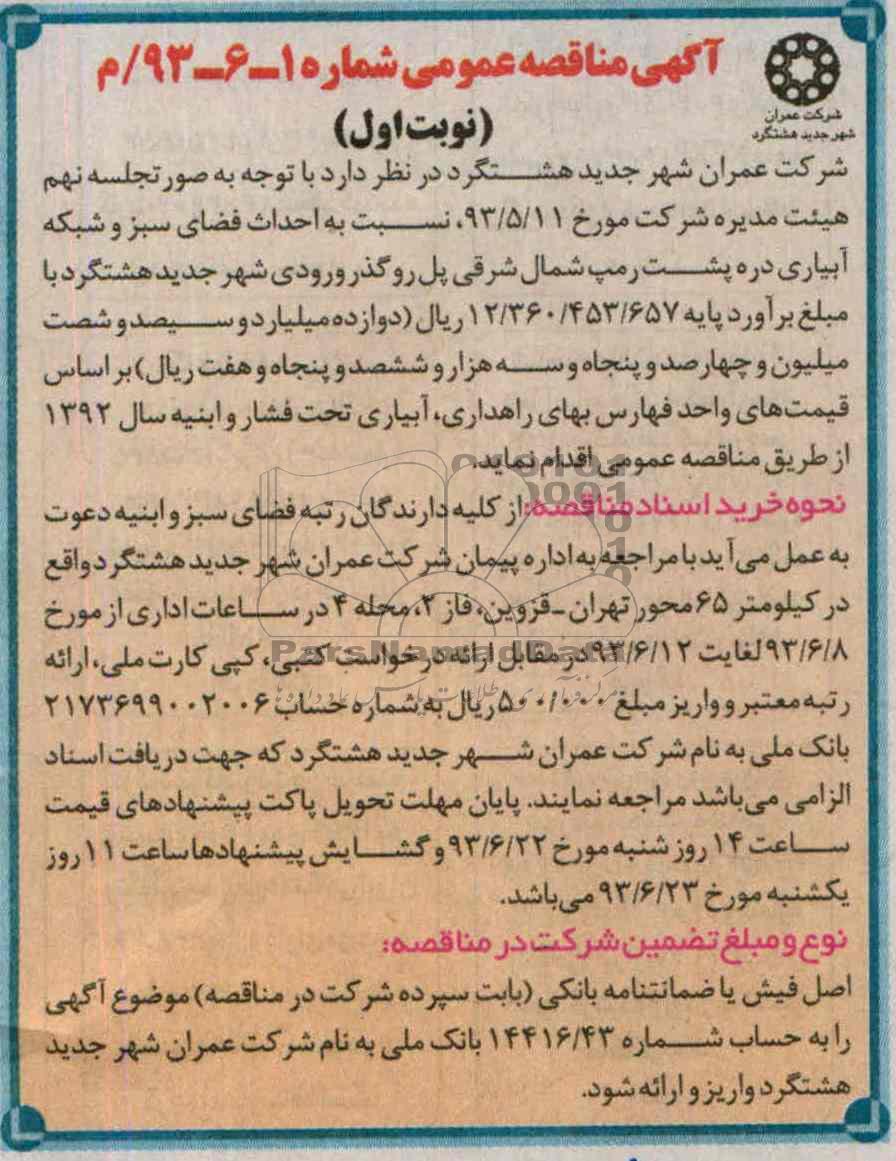 آگهی مناقصه عمومی شماره ۱-۶-۹۳/م
(نوبت اول)
شرکت عمران
شهر جدید هشتگرد
شرکت عمران شهر جدید هشتگرد در نظر دارد با توجه به صورتجلسه نهم
هیئت مدیره شرکت مورخ ۹۳/۵/۱۱، نسبت به احداث فضای سبز و شبکه
آبیاری دره پشت رمپ شمال شرقی پل روگذر ورودی شهر جدید هشتگرد با
مبلغ برآورد پایه ۱۲/۳۶۰/۴۵۳/۶۵۷ ریال (دوازده میلیارد و سیصد و شصت
میلیون و چهارصد و پنجاه و سه هزار و ششصد و پنجاه و هفت ریال) بر اساس
قیمت‌های واحد فهارس بهای راهداری، آبیاری تحت فشار و ابنیه سال ۱۳۹۲
از طریق مناقصه عمومی اقدام نماید.
نحوه خرید اسناد مناقصه: از کلیه دارندگان رتبه فضای سبز و ابنیه دعوت
به عمل می‌آید با مراجعه به اداره پیمان شرکت عمران شهر جدید هشتگرد واقع
در کیلومتر ۶۵ محور تهران - قزوین، فاز ۲، محله ۴ در ساعات اداری از مورخ
۹۳/۶/۸ لغایت ۹۳/۶/۱۲ در مقابل ارائه درخواست کتبی، کپی کارت ملی، ارائه
ParsNamadData
رتبه معتبر و واریز مبلغ ۵۰۰/۰۰۰ ریال به شماره حساب ۲۱۷۳۶۹۹۰۰۲۰۰۶
بانک ملی به نام شرکت عمران شهر جدید هشتگرد که جهت دریافت اسناد
الزامی می‌باشد مراجعه نمایند. پایان مهلت تحویل پاکت پیشنهادهای قیمت
ساعت ۱۴ روز شنبه مورخ ۹۳/۶/۲۲ و گشایش پیشنهادها ساعت ۱۱ روز
یکشنبه مورخ ۹۳/۶/۲۳ می‌باشد.
نوع و مبلغ تضمین شرکت در مناقصه:
اصل فیش یا ضمانتنامه بانکی (بابت سپرده شرکت در مناقصه) موضوع آگهی
را به حساب شماره ۱۴۴۱۶/۴۳ بانک ملی به نام شرکت عمران شهر جدید
هشتگرد واریز و ارائه شود.